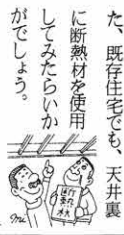 た、既存住宅でも、天井裏
に断熱材を使用
してみたらいか
がでしょう。